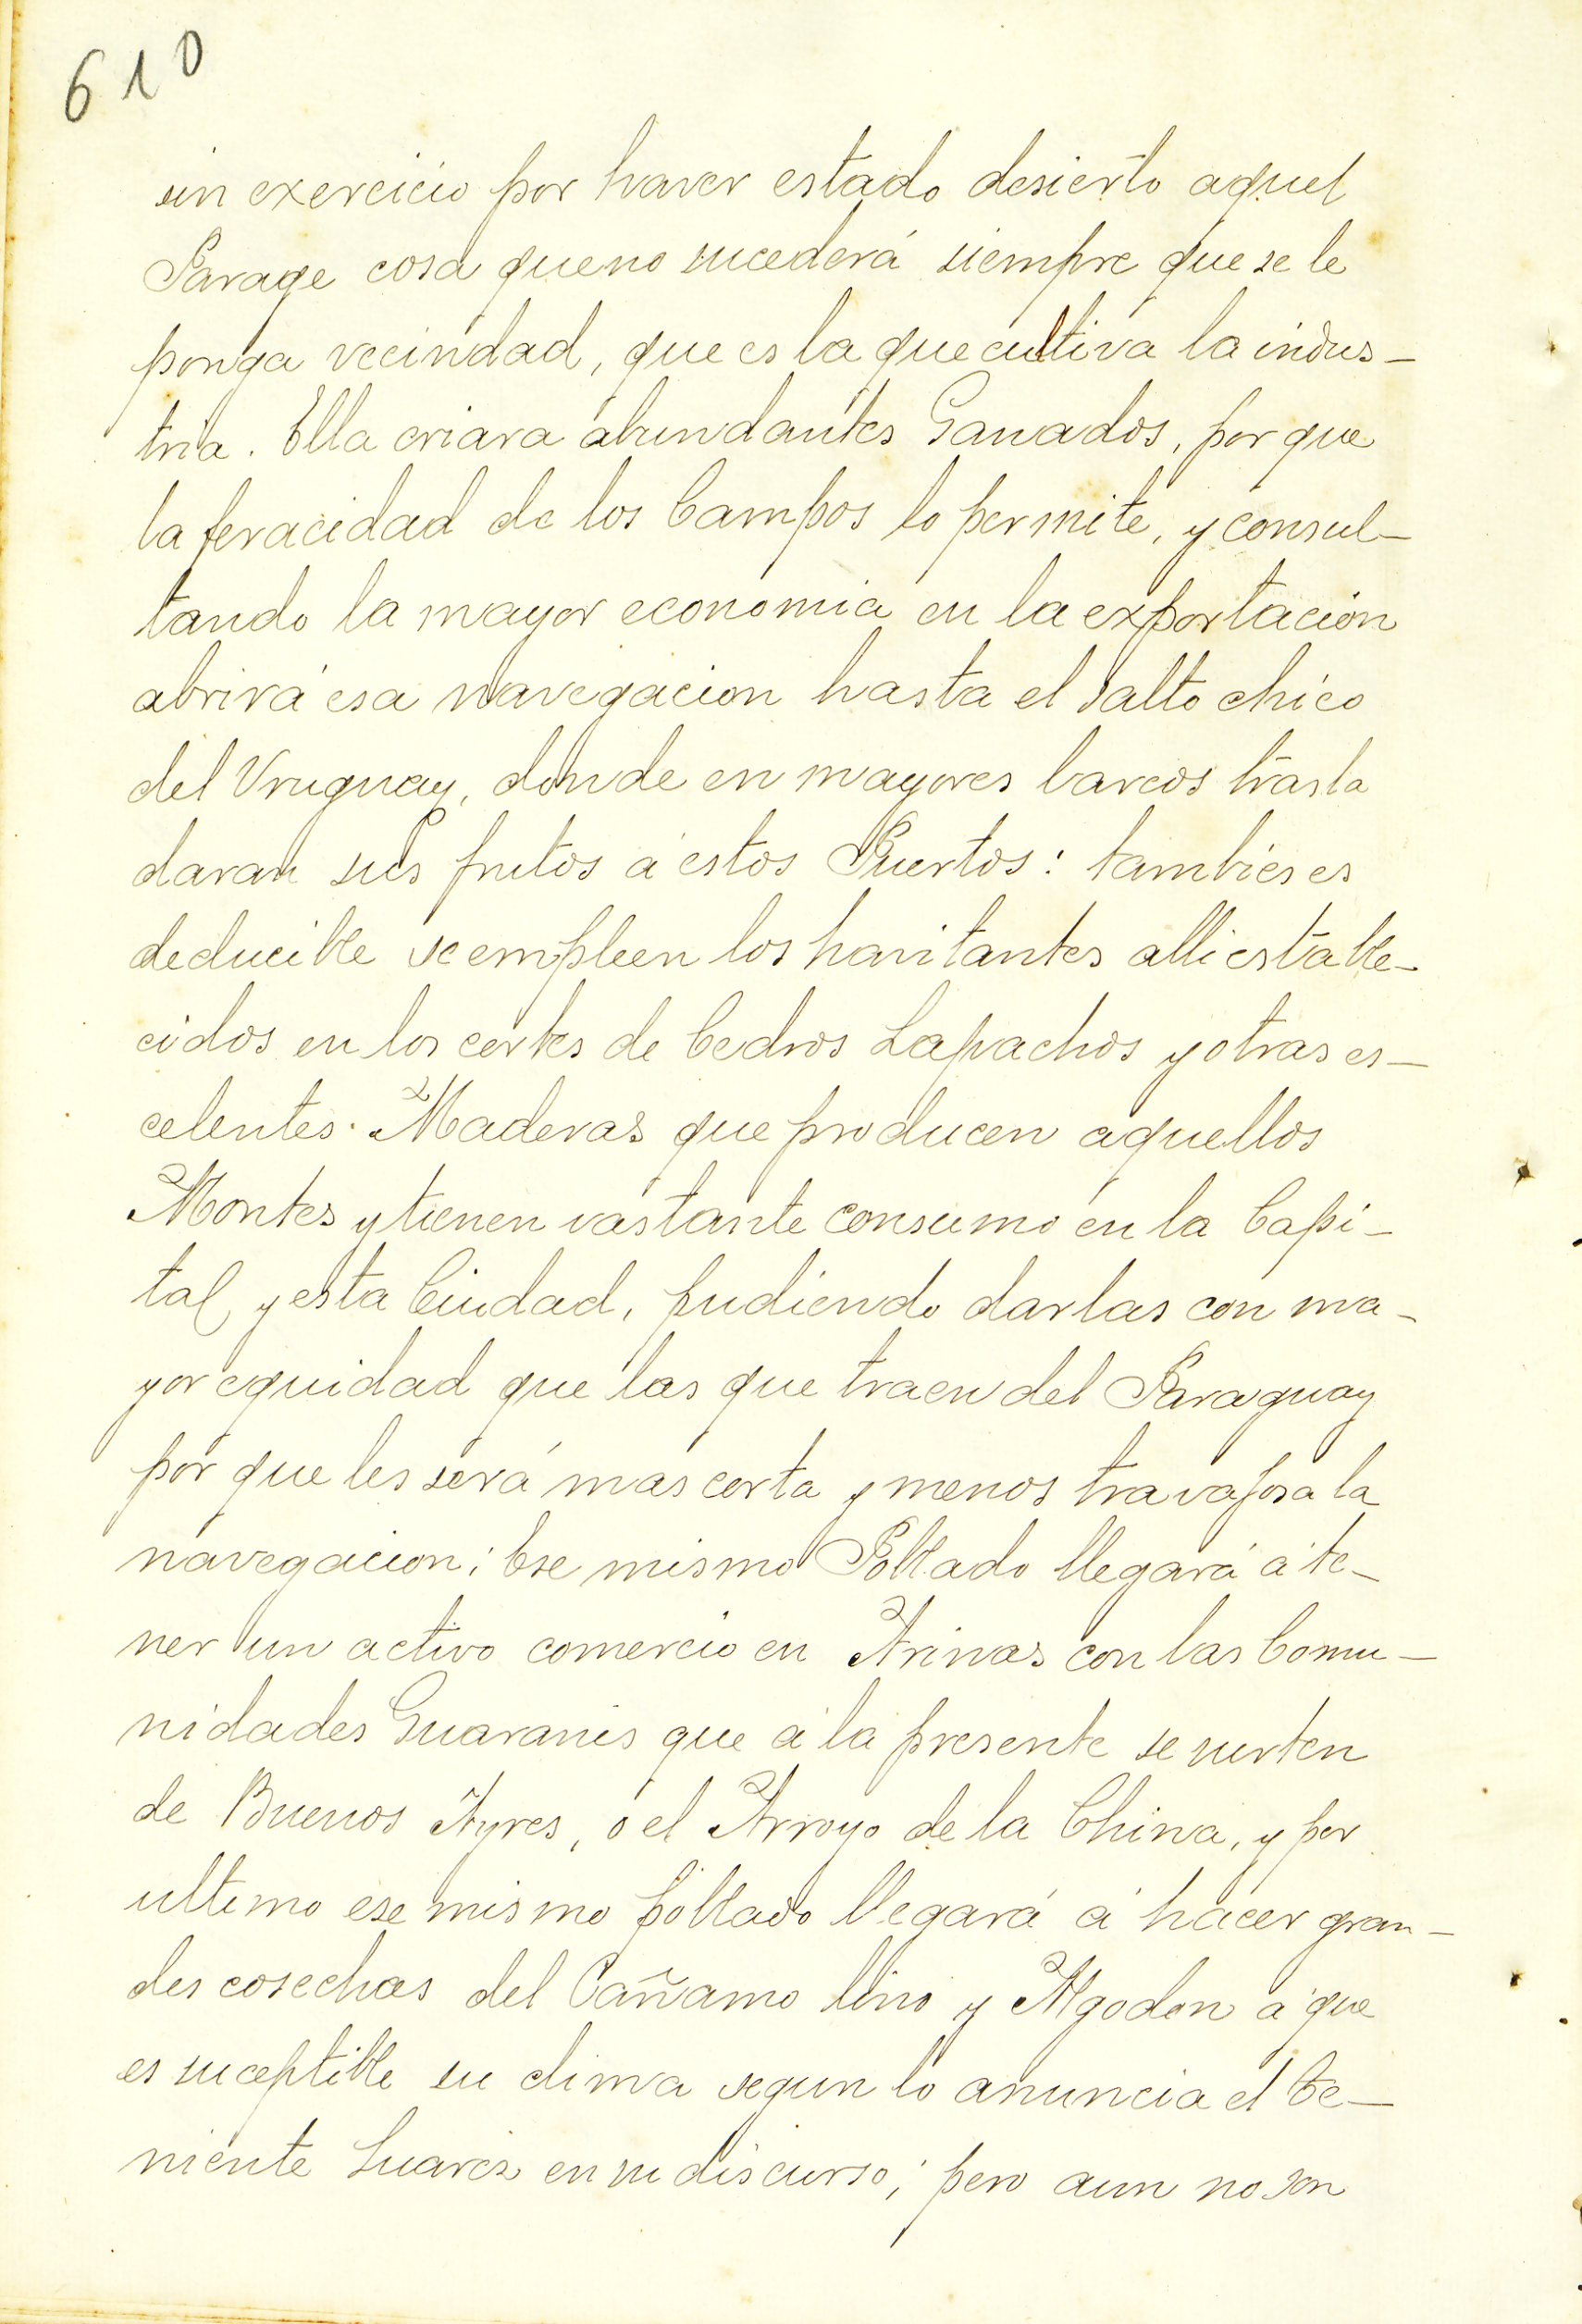 610
sin exercicio por haver estado desierto aquel
Parage cosa que no sucederá siempre que se le
ponga vecindad, que es la que cultiva la indus-
tria. Ella criara abundantes Ganados, por que
la feracidad de los Campos lo permite, y consul-
tando la mayor economia en la exportacion
abrirá esa navegacion hasta el salto chico
del Uruguay, donde en mayores barcos trasla
daran sus frutos á estos Puertos: tambies es
deducible se empleen los havitantes alli estable-
cidos en los cortes de Cedros Lapachos y otras es-
celentes Maderas que producen aquellos
Montes y tienen vastante consumo en la Capi-
tal, y esta Ciudad, pudiendo darlas con ma-
yor equidad que las que traen del Paraguay
por que les será mas corta y menos travajosa la
navegacion; Ese mismo Poblado llegará á te-
ner un activo comercio en Arinas con las Comu-
nidades Guaranis que á la presente se surten
de Buenos Ayres, o el Arroyo de la China, y por
ultimo ese mismo poblado llegará á hacer gran-
des cosechas del Cañamo lino y Algodon á que
es suceptible su clima segun lo anuncia el te-
niente Suarez en su discurso; pero aun no son